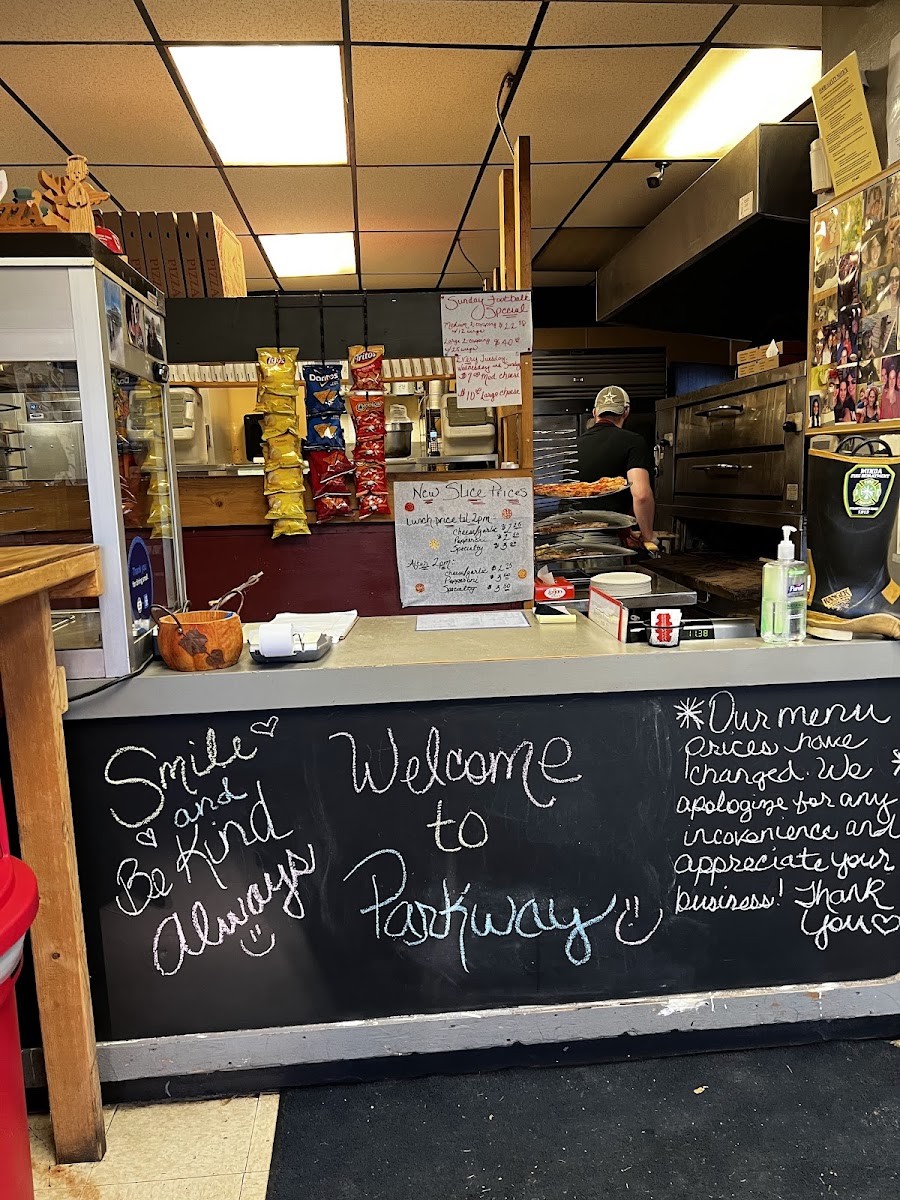 PIZZA
PIZZA
PIZZA
Sunday Football
Special
Medium 2 topping $22
w/12 wings
Large 2 topping $40
w/25 wings
Every Tuesday
Wednesday and Sunday
Med cheese
$10 Large cheese
Lays
Doritos
Fritos
New Slice Prices
Lunch price til 2pm
Cheese/garlic
Pepperoni
Specialty
After 2pm:
Cheese/garlic
Pepperoni
Specialty
11:38
Purell
MINOA
FIRE DEPARTMENT
RANGER
Thank you
Smile
and
Be Kind
Always
Welcome
to
Parkway
*Our menu
prices have
changed. We
apologize for any
incovenience and
appreciate your
business! Thank
You